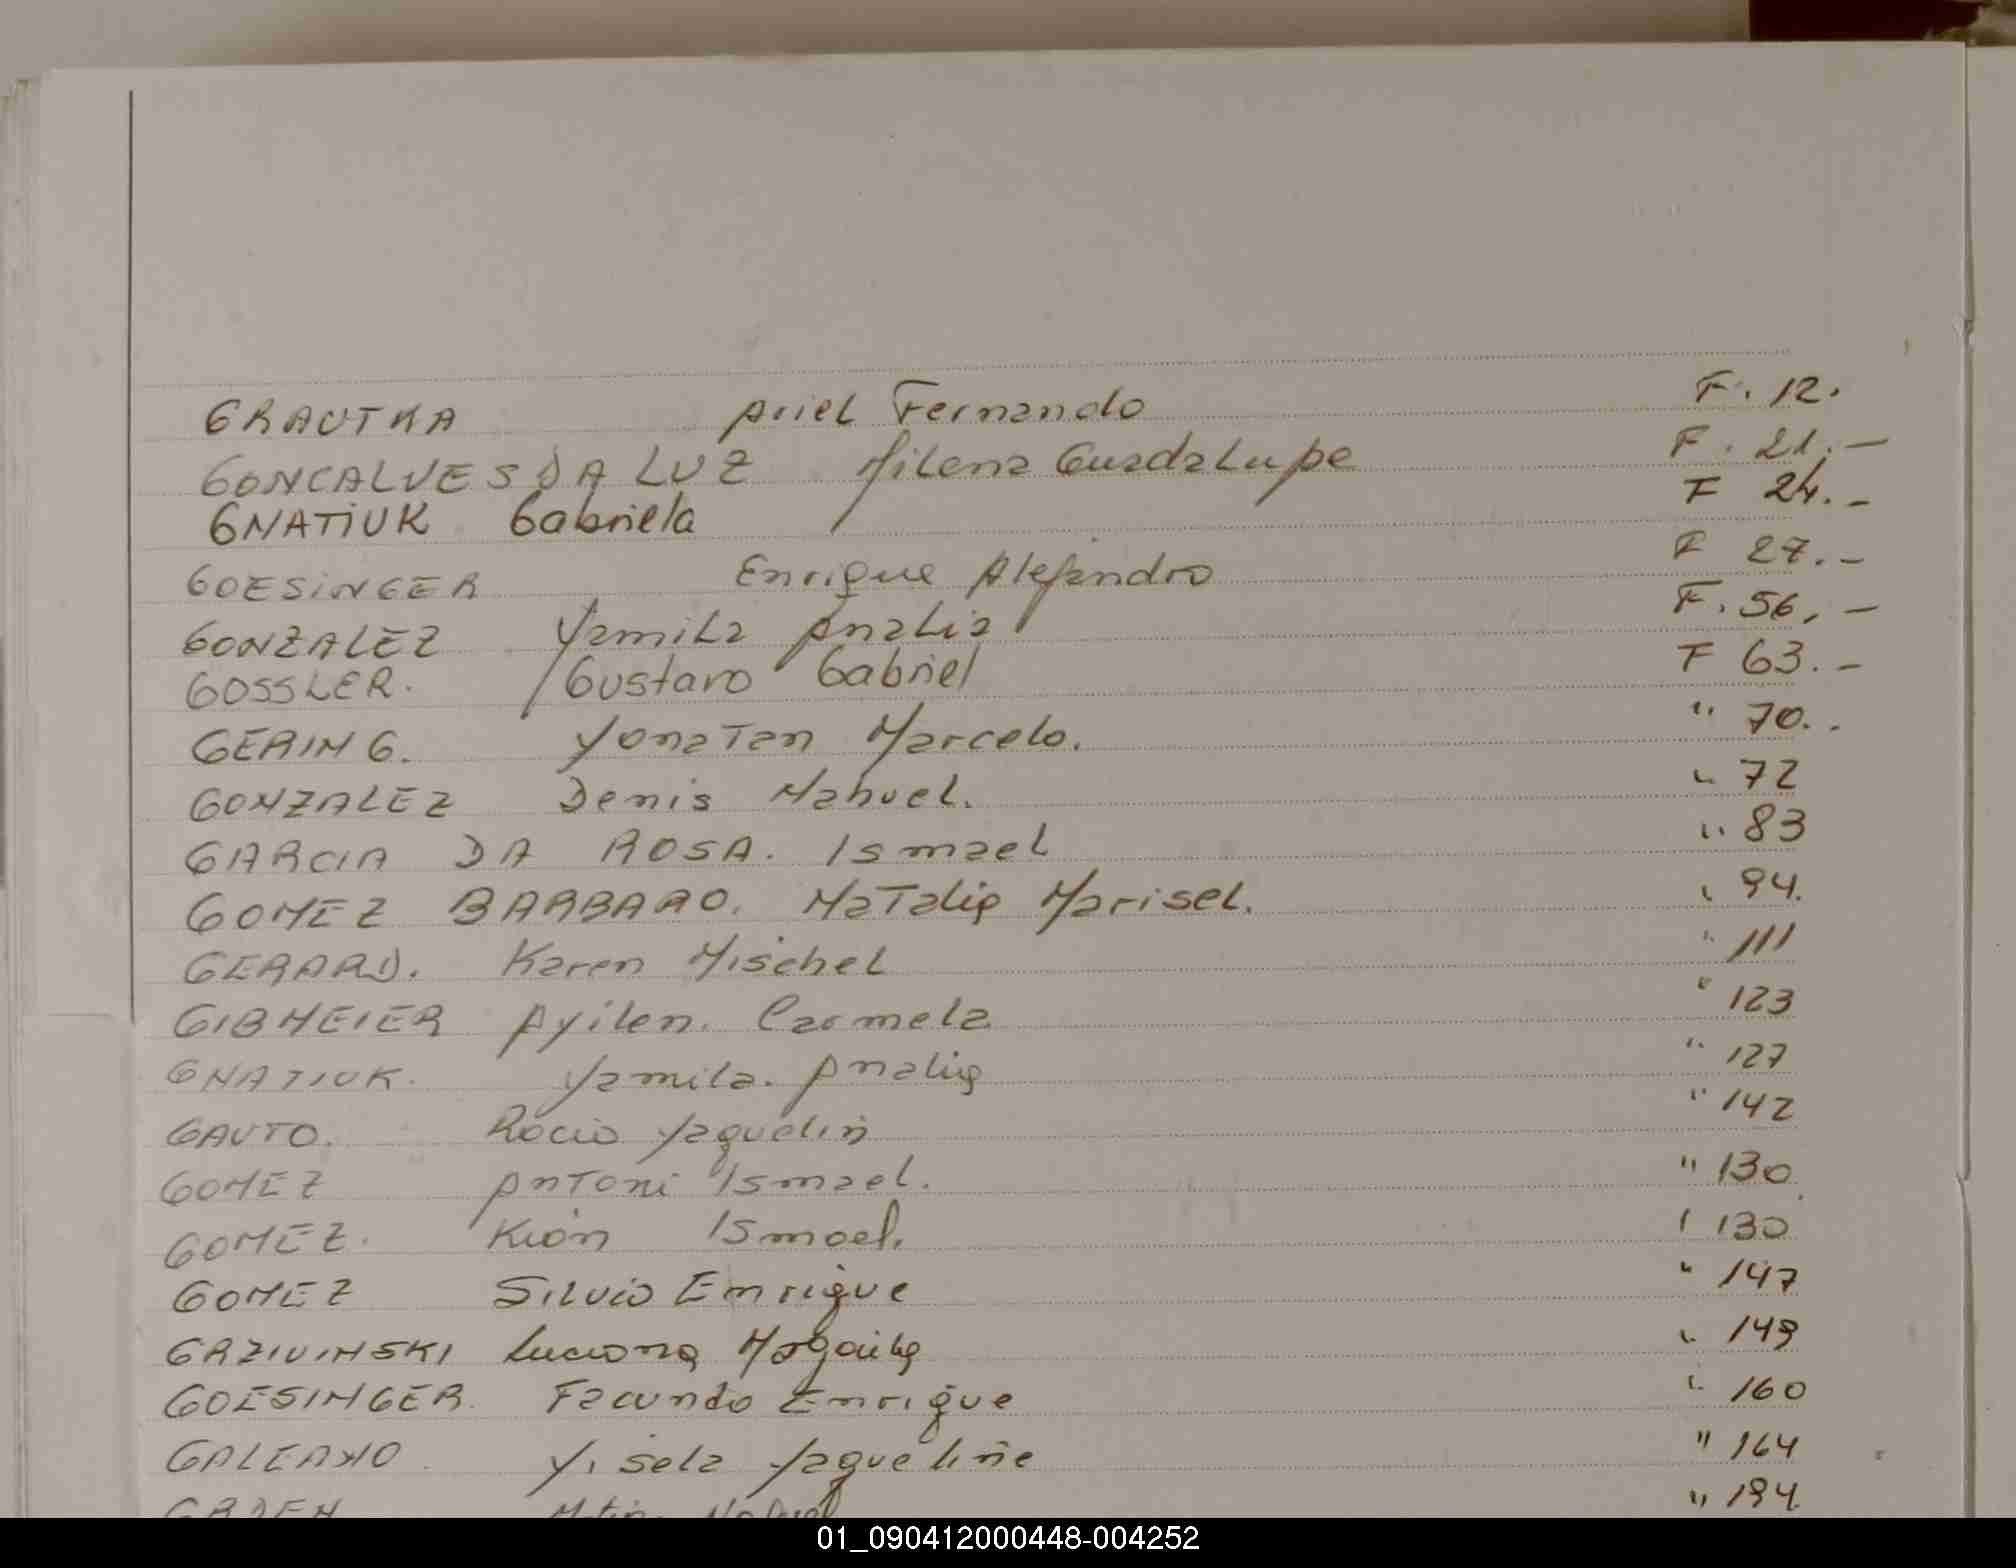 GRAUTKA Ariel Fernando F. 12.
GONCALVES DA LUZ Milena Guadalupe F. 21.-
GNATIUK Gabriela F 24.-
GOESINGER Enrique Alejandro F 27.-
GONZALEZ Yamila Analia F. 56,-
GOSSLER. Gustavo Gabriel F 63.-
GERING. Yonatan Marcelo. " 70..
GONZALEZ Denis Nahuel. " 72
GARCIA DA ROSA. Ismael " 83
GOMEZ BARBARO. Natalia Marisel. " 94.
GERARD. Karen Mischel " 111
GIBMEIER Ayilen. Carmela " 123
GNATIUK. Yamila. Analia " 127
GAUTO. Rocio Yaquelin " 142
GOMEZ Antoni Ismael. " 130
GOMEZ. Kion Ismael. " 130
GOMEZ Silvio Enrique " 147
GRZIVINSKI Luciana Magaily " 149
GOESINGER. Facundo Enrique " 160
GALEANO Yisela Yaqueline " 164
" 194
01_090412000448-004252